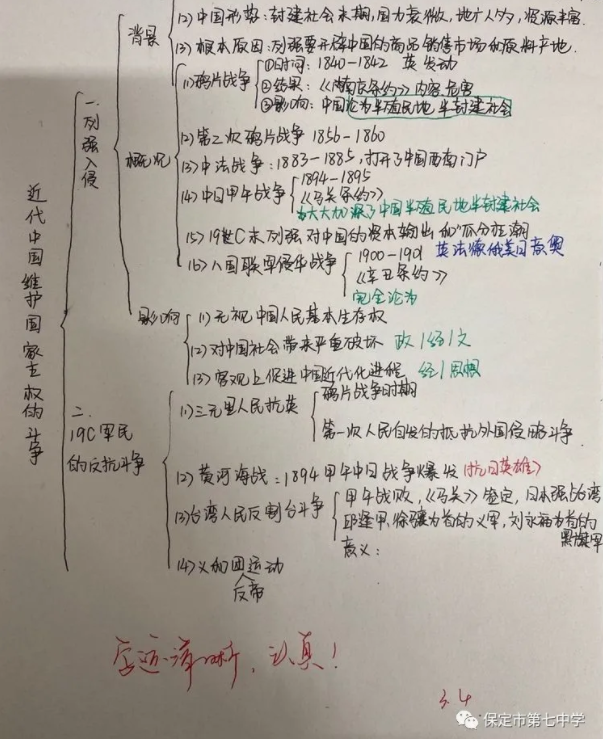 背景
(2) 中国形势：封建社会末期，国力衰微，地广人多，资源丰富.
(3) 根本原因：列强要开辟中国的商品销售市场和原料产地.
一.列强入侵
概况
(1) 鸦片战争
①时间：1840-1842 英 发动
②结果：《南京条约》内容危害
③影响：中国沦为半殖民地半封建社会
(2) 第二次鸦片战争 1856-1860
(3) 中法战争：1883-1885，打开了中国西南门户
(4) 中日甲午战争
1894-1895
《马关条约》
大大加深了中国半殖民地半封建社会
(5) 19世C末列强对中国的资本输出和"瓜分狂潮
(6) 八国联军侵华战争
1900-1901 英法德俄美日意奥
《辛丑条约》
完全沦为
影响
(1) 无视中国人民基本生存权
(2) 对中国社会带来严重破坏 政/经/文
(3) 客观上促进中国近代化进程 经/思想
近代中国维护国家主权的斗争
二.19C军民的反抗斗争
(1) 三元里人民抗英
鸦片战争时期
第一次人民自发的抵抗外国侵略斗争
(2) 黄河海战：1894甲午中日战争爆发 (抗日英雄)
(3) 台湾人民反割台斗争
甲午战败，《马关》签定，日本强占台湾
邱逢甲、徐骧为首的义军，刘永福为首的黑旗军
意义：
(4) 义和团运动
反帝
字迹清晰，认真！
3.4
保定市第七中学